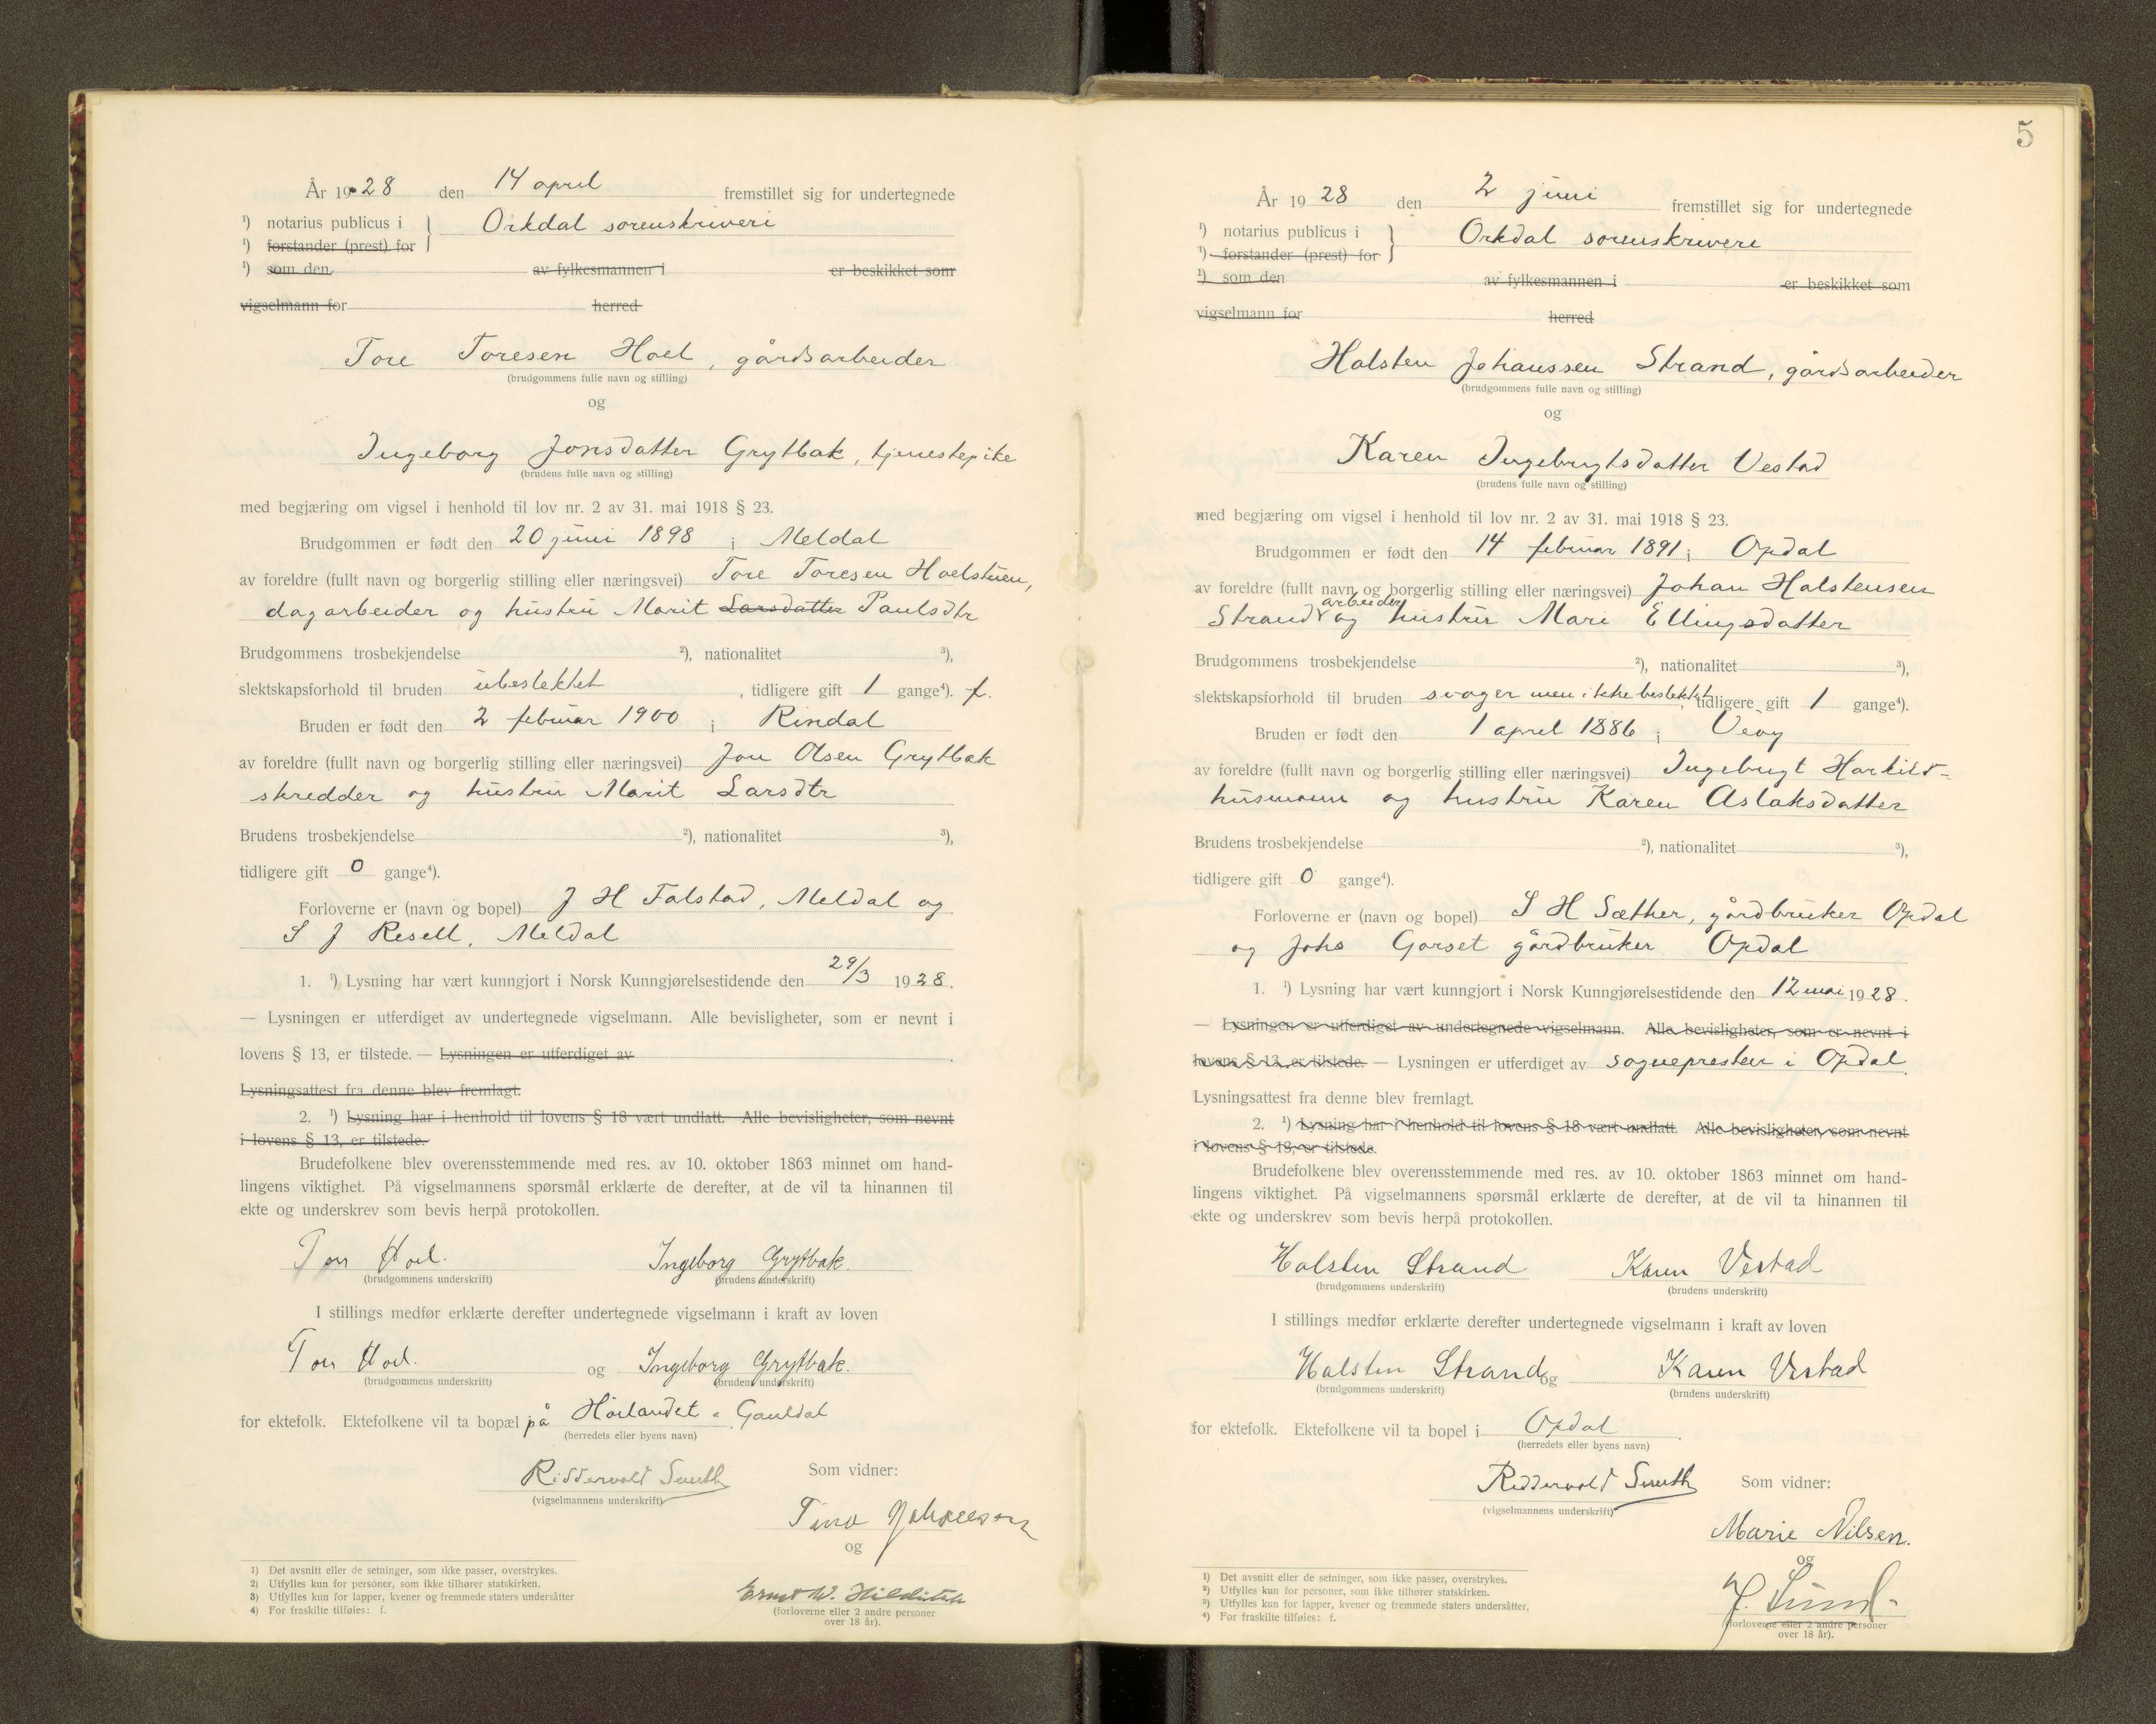 År 1928 den 14 april fremstillet sig for undertegnede
¹) notarius publicus i } Orkdal sorenskriveri
¹) forstander (prest) for
¹) som den av fylkesmannen i er beskikket som
vigselmann for herred
Tore Toresen Hoel, gårdsarbeider
(brudgommens fulle navn og stilling)
og
Ingeborg Jonsdatter Grytbak, tjenestepike
(brudens fulle navn og stilling)
med begjæring om vigsel i henhold til lov nr. 2 av 31. mai 1918 § 23.
Brudgommen er født den 20 juni 1898 i Meldal
av foreldre (fullt navn og borgerlig stilling eller næringsvei) Tore Toresen Hoelstuen,
dagarbeider og hustru Marit Larsdatter Paulsdtr
Brudgommens trosbekjendelse ²), nationalitet ³),
slektskapsforhold til bruden ubeslektet, tidligere gift 1 gange⁴). f.
Bruden er født den 2 februar 1900 i Rindal
av foreldre (fullt navn og borgerlig stilling eller næringsvei) Jon Olsen Grytbak
skredder og hustru Marit Larsdtr
Brudens trosbekjendelse ²), nationalitet ³),
tidligere gift 0 gange⁴).
Forloverne er (navn og bopel) J H Falstad, Meldal og
S J Resell, Meldal
1. ¹) Lysning har vært kunngjort i Norsk Kunngjørelsestidende den 29/3 1928.
— Lysningen er utferdiget av undertegnede vigselmann. Alle bevisligheter, som er nevnt i
lovens § 13, er tilstede. — Lysningen er utferdiget av .
Lysningsattest fra denne blev fremlagt.
2. ¹) Lysning har i henhold til lovens § 18 vært undlatt. Alle bevisligheter, som nevnt
i lovens § 13, er tilstede.
Brudefolkene blev overensstemmende med res. av 10. oktober 1863 minnet om hand-
lingens viktighet. På vigselmannens spørsmål erklærte de derefter, at de vil ta hinannen til
ekte og underskrev som bevis herpå protokollen.
Tore Hoel. Ingeborg Grytbak.
(brudgommens underskrift) (brudens underskrift)
I stillings medfør erklærte derefter undertegnede vigselmann i kraft av loven
Tore Hoel. og Ingeborg Grytbak.
(brudgommens underskrift) (brudens underskrift)
for ektefolk. Ektefolkene vil ta bopæl på Høilandet. Gauldal
(herredets eller byens navn)
Riddervold Smith Som vidner:
(vigselmannens underskrift)
Tina
og
Ernst W.
(forloverne eller 2 andre personer
over 18 år).
1) Det avsnitt eller de setninger, som ikke passer, overstrykes.
2) Utfylles kun for personer, som ikke tilhører statskirken.
3) Utfylles kun for lapper, kvener og fremmede staters undersåtter
4) For fraskilte tilføies: f.
5
År 1928 den 2 juni fremstillet sig for undertegnede
¹) notarius publicus i } Orkdal sorenskriveri
¹) forstander (prest) for
¹) som den av fylkesmannen i er beskikket som
vigselmann for herred
Halsten Johanssen Strand, gårdsarbeider
(brudgommens fulle navn og stilling)
og
Karen Ingebrigtsdatter Vestad
(brudens fulle navn og stilling)
med begjæring om vigsel i henhold til lov nr. 2 av 31. mai 1918 § 23.
Brudgommen er født den 14 februar 1891 i Opdal
av foreldre (fullt navn og borgerlig stilling eller næringsvei) Johan Halstensen
Strand arbeider og hustru Mari Ellingsdatter
Brudgommens trosbekjendelse ²), nationalitet ³),
slektskapsforhold til bruden svoger men ikke beslektet, tidligere gift 1 gange⁴).
Bruden er født den 1 april 1886 i Veøy
av foreldre (fullt navn og borgerlig stilling eller næringsvei) Ingebrigt Harkild-
husmann og hustru Karen Aslaksdatter
Brudens trosbekjendelse ²), nationalitet ³),
tidligere gift 0 gange⁴).
Forloverne er (navn og bopel) S H Sæther, gårdbruker Opdal
og Johs Gorset gårdbruker Opdal
1. ¹) Lysning har vært kunngjort i Norsk Kunngjørelsestidende den 12 mai 1928.
— Lysningen er utferdiget av undertegnede vigselmann. Alle bevisligheter, som er nevnt i
lovens § 13, er tilstede. — Lysningen er utferdiget av sognepresten i Opdal.
Lysningsattest fra denne blev fremlagt.
2. ¹) Lysning har i henhold til lovens § 18 vært undlatt. Alle bevisligheter, som nevnt
i lovens § 13, er tilstede.
Brudefolkene blev overensstemmende med res. av 10. oktober 1863 minnet om hand-
lingens viktighet. På vigselmannens spørsmål erklærte de derefter, at de vil ta hinannen til
ekte og underskrev som bevis herpå protokollen.
Halsten Strand Karen Vestad
(brudgommens underskrift) (brudens underskrift)
I stillings medfør erklærte derefter undertegnede vigselmann i kraft av loven
Halsten Strand og Karen Vestad
(brudgommens underskrift) (brudens underskrift)
for ektefolk. Ektefolkene vil ta bopel i Opdal.
(herredets eller byens navn)
Riddervold Smith Som vidner:
(vigselmannens underskrift)
Marie Nilsen.
og
J. Lund
(forloverne eller 2 andre personer
over 18 år).
1) Det avsnitt eller de setninger, som ikke passer, overstrykes.
2) Utfylles kun for personer, som ikke tilhører statskirken.
3) Utfylles kun for lapper, kvener og fremmede staters undersåtter.
4) For fraskilte tilføies: f.